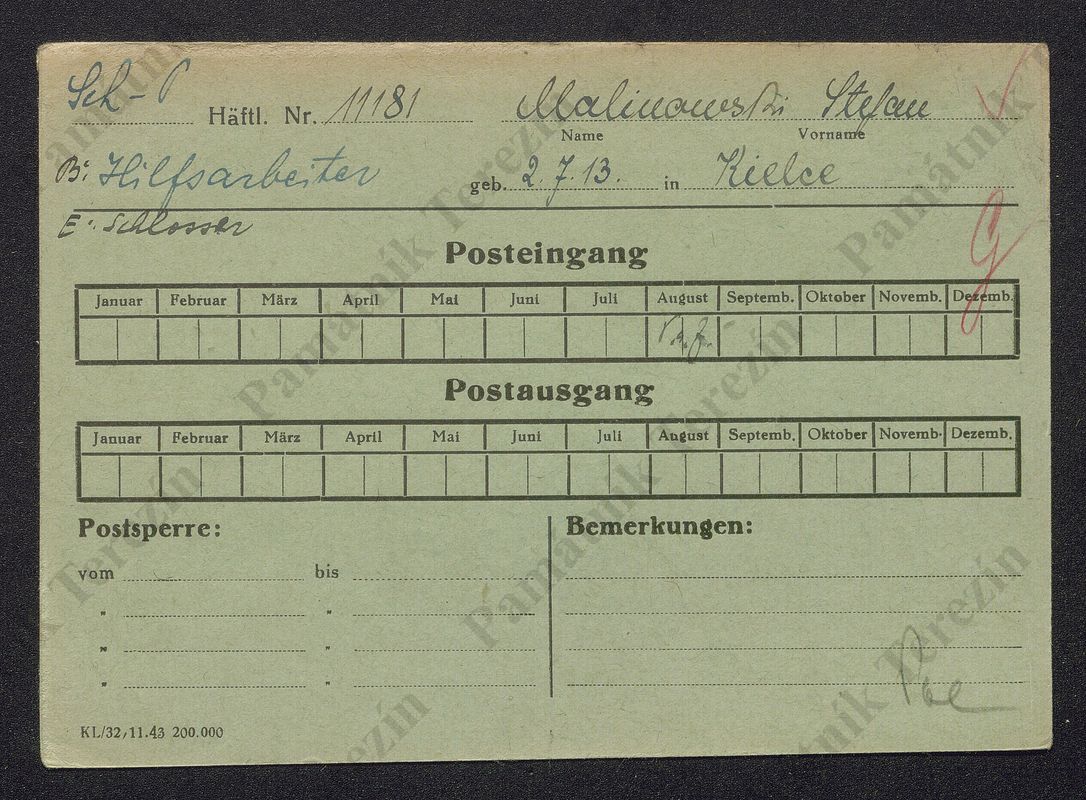 Sch-P Häftl. Nr. 11181 Malinowski Stefan
Name Vorname
B: Hilfsarbeiter geb. 2.7.13. in Kielce
E: Schlosser
G
Posteingang
Januar Februar März April Mai Juni Juli August Septemb. Oktober Novemb. Dezemb.
Postausgang
Januar Februar März April Mai Juni Juli August Septemb. Oktober Novemb. Dezemb.
Postsperre: Bemerkungen:
vom bis
" "
" "
" "
KL/32, 11.43 200.000
Památník Terezín